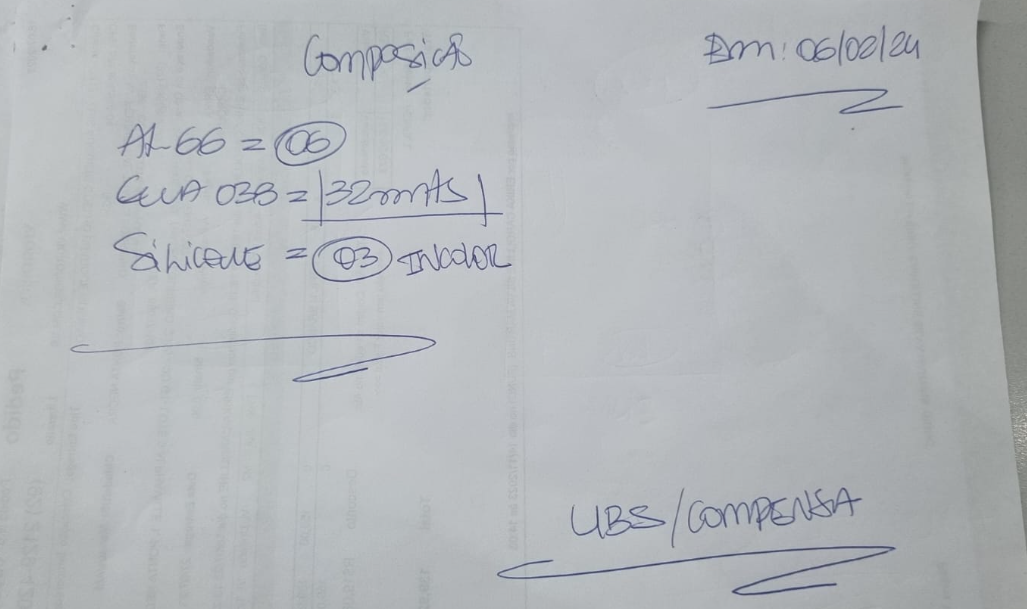 Composição
Em: 06/02/24
AL-66 = 06
GUA 038 = 32mts
Silicone = 03 INCOLOR
UBS/COMPENSA